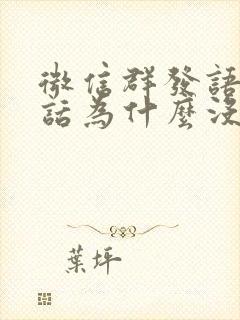 微信群發語
話為什麼沒
葉坪